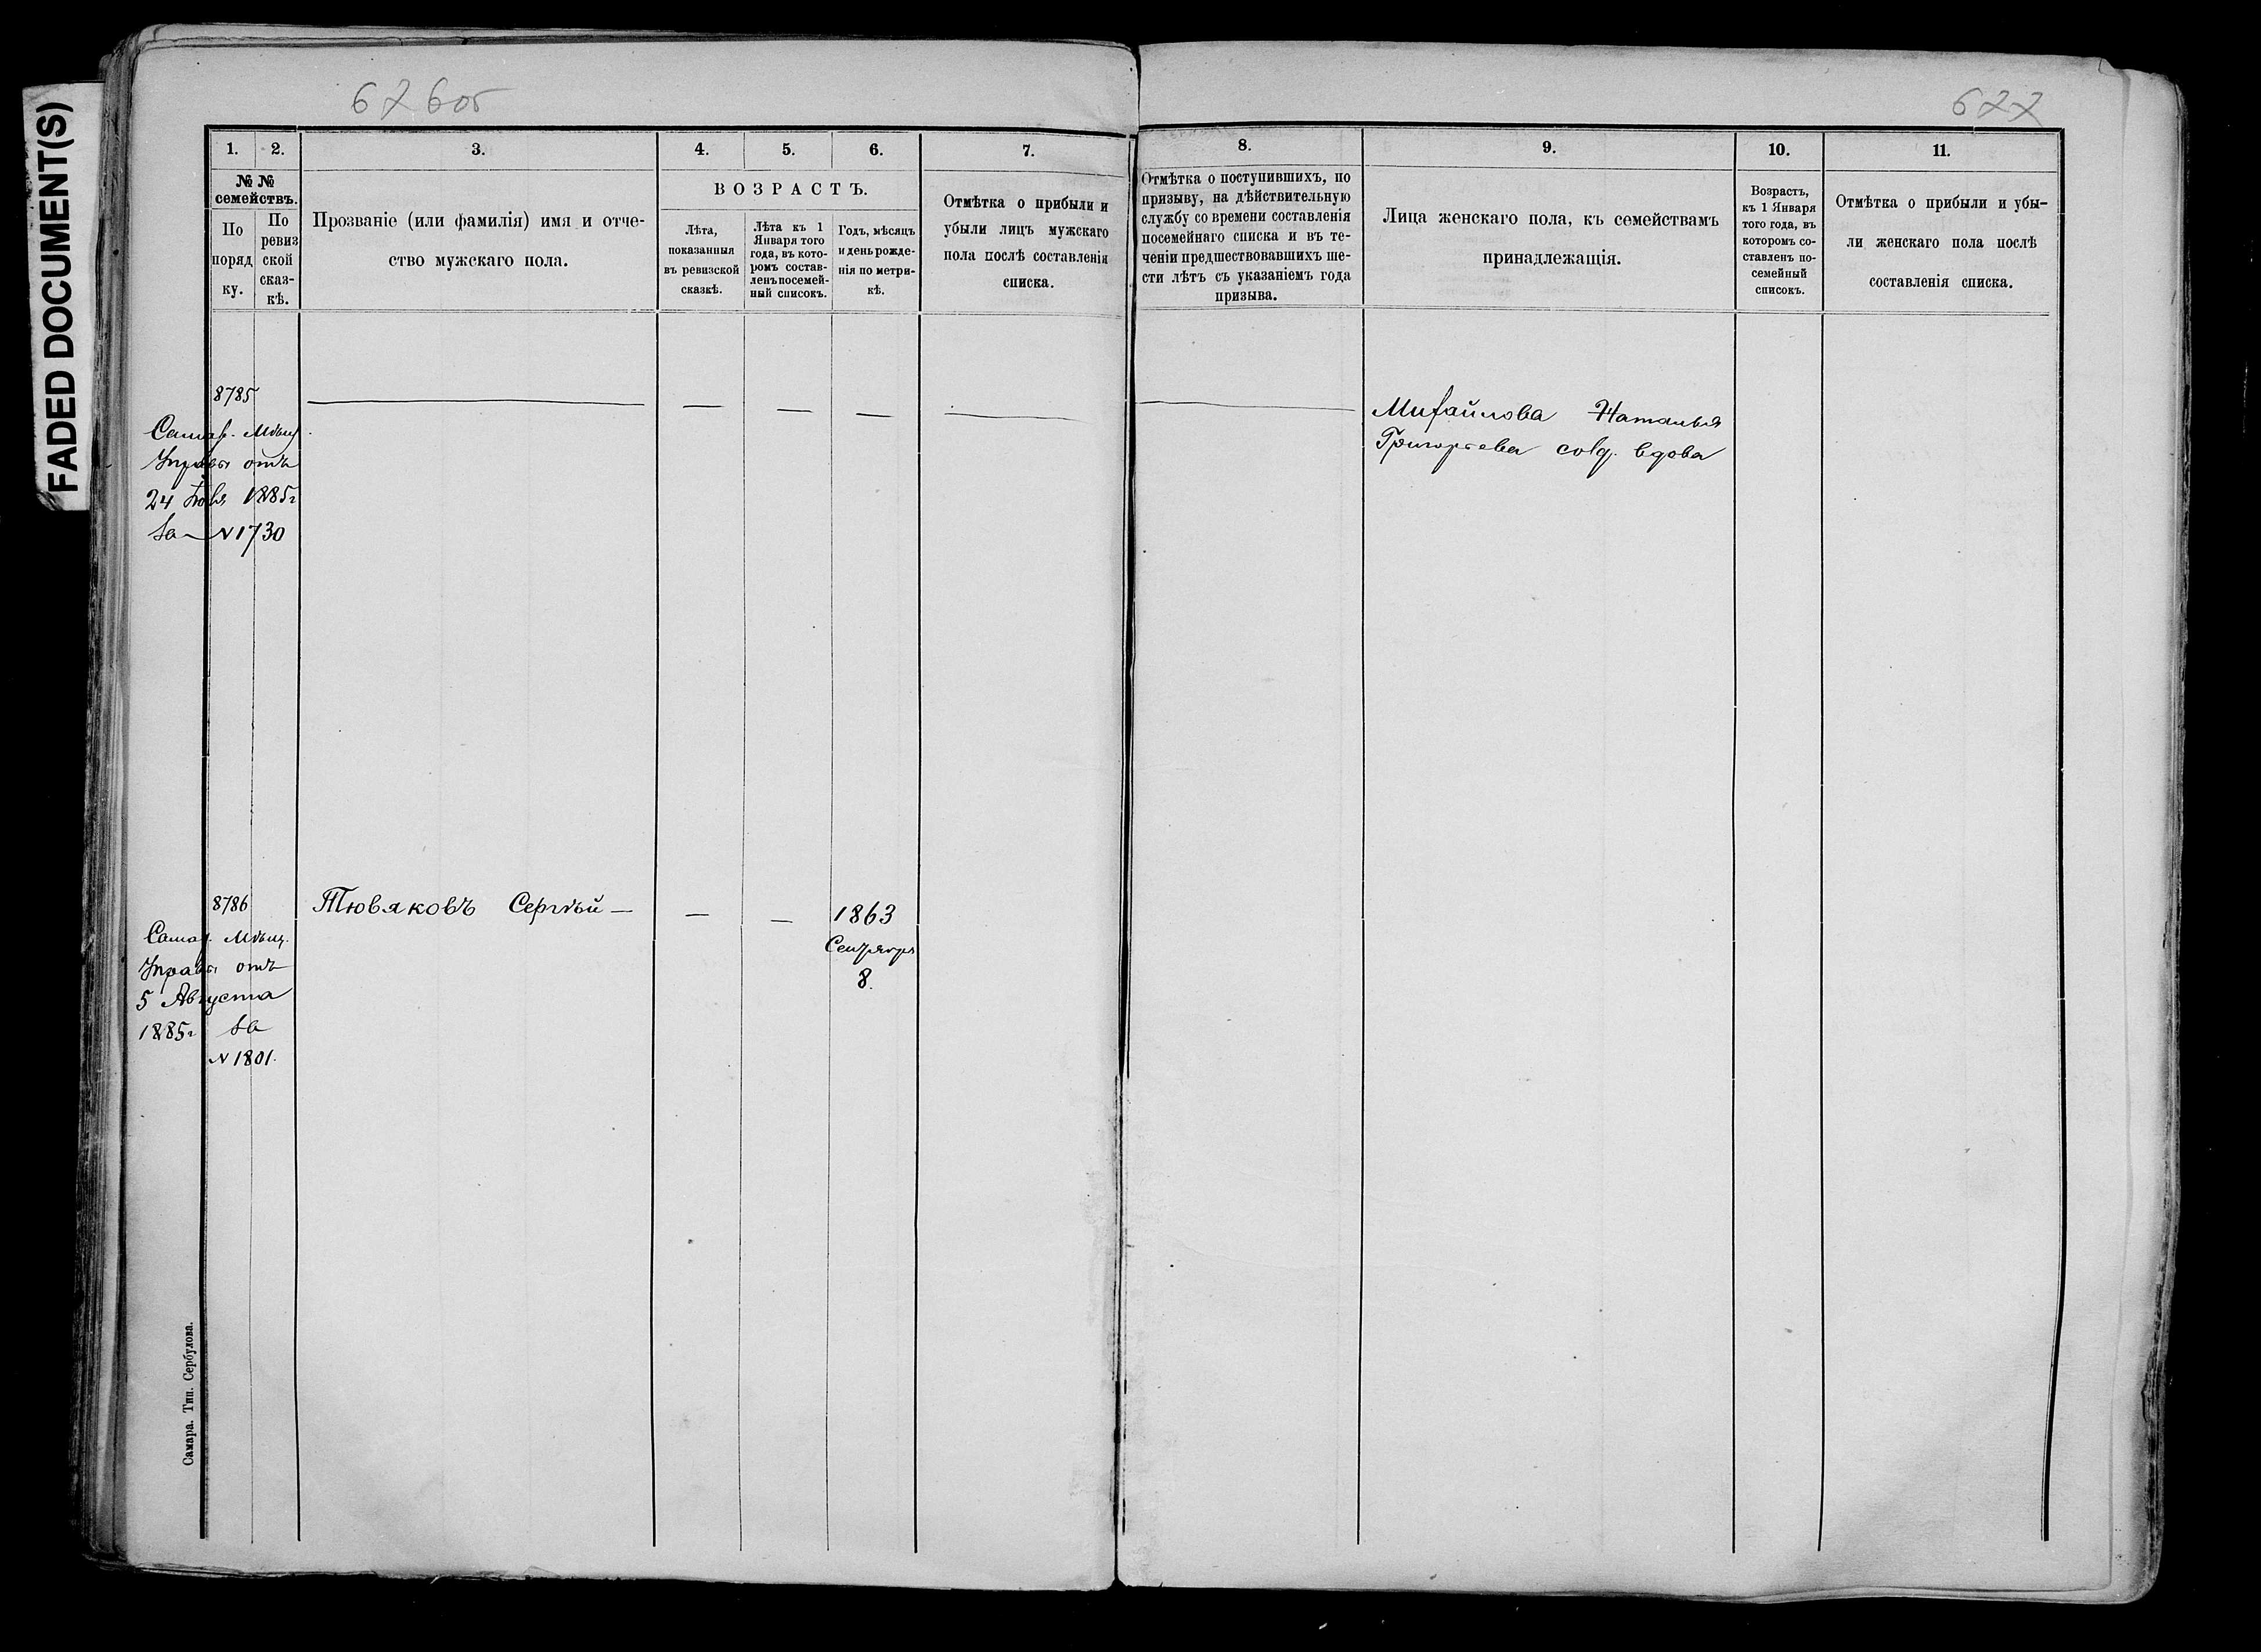 FADED DOCUMENT(S)
676об
677
1.
2.
3.
4.
5.
6.
7.
8.
9.
10.
11.
№ №
семействъ.
По
поряд
ку.
По
ревиз
ской
сказ-
кѣ.
Прозваніе (или фамилія) имя и отче-
ство мужскаго пола.
ВОЗРАСТЪ.
Лѣта,
показанныя
въ ревизской
сказкѣ.
Лѣта къ 1
Января того
года, въ кото-
ромъ состав-
ленъ посемей-
ный списокъ.
Годъ, мѣсяцъ
и день рожде-
нія по метри-
кѣ.
Отмѣтка о прибыли и
убыли лицъ мужскаго
пола послѣ составленія
списка.
Отмѣтка о поступившихъ, по
призыву, на дѣйствительную
службу со времени составленія
посемейнаго списка и въ те-
ченіи предшествовавшихъ ше-
сти лѣтъ съ указаніемъ года
призыва.
Лица женскаго пола, къ семействамъ
принадлежащія.
Возрастъ,
къ 1 Января
того года, въ
которомъ со-
ставленъ по-
семейный
списокъ.
Отмѣтка о прибыли и убы-
ли женскаго пола послѣ
составленія списка.
8785 — — — — — —
Самар. Мѣщ.
Управы отъ
24 1885г
за №1730
Михайлова Наталья
Григорьева солд. вдова
8786 Тювяковъ Сергѣй — — — 1863
Сентября
8.
Самар. Мѣщ.
Управы отъ
5 Августа
1885г за
№1801.
Самара. Тип. Сербулова.